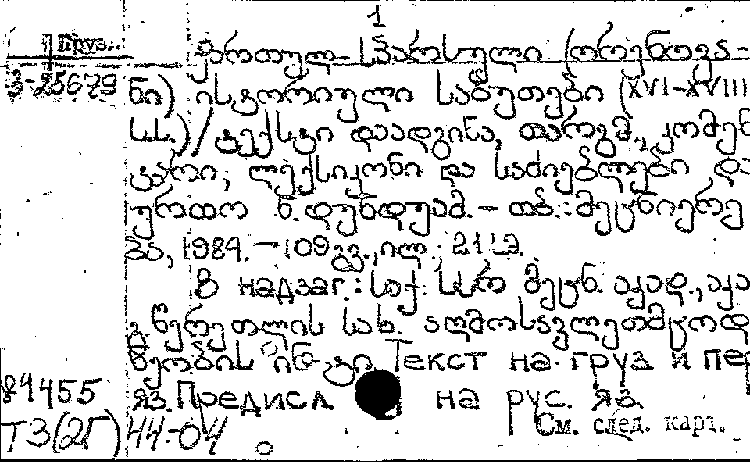 1
Груз.
ქართულ-სპარსული (ორენოვა-
3-25679
ნი) ისტორიული საბუთები (XVI-XVIII
სს.)/ტექსტი დაადგინა, თარგმ., კომენ
ტარი, ლექსიკონი და საძიებლები და
ურთო ნ. დუნდუამ. - თბ.: მეცნიერე
ბა, 1984. - 109 გვ., ილ.; 21 სმ.
В надзаг.: საქ. სსრ მეცნ. აკად., აკა
გ. წერეთლის სახ. აღმოსავლეთმცოდ
ნეობის ინ-ტი Текст на груз и пер
84455
яз. Предисл. на рус. яз.
ТЗ(2Г) 44-04
См. след. карт.